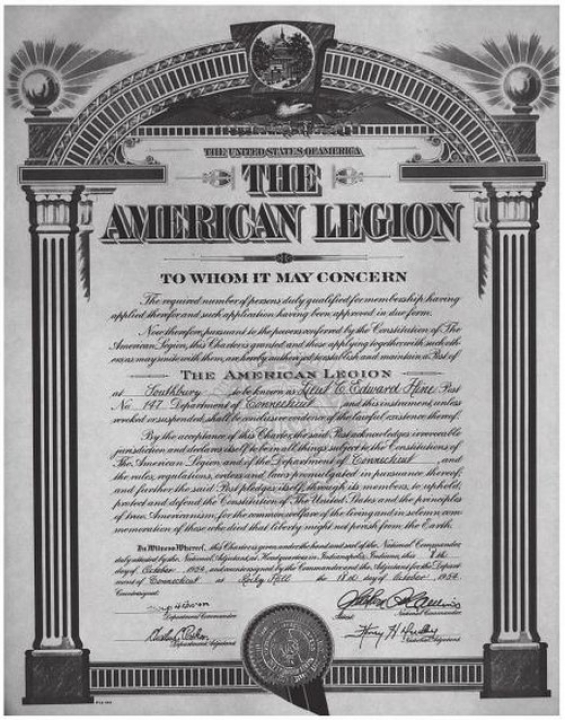 THE UNITED STATES OF AMERICA
THE
AMERICAN LEGION
TO WHOM IT MAY CONCERN
The required number of persons duly qualified for membership having
applied therefor and such application having been approved in due form.
Now therefore, pursuant to the powers conferred by the Constitution of The
American Legion, this Charter is granted and those applying together with such oth-
ers as may unite with them, are hereby authorized to establish and maintain a Post of
THE AMERICAN LEGION
at Southbury to be known as Lieut C Edward Post
No 147 Department of Connecticut and this instrument, unless
revoked or suspended, shall be conclusive evidence of the lawful existence thereof.
By the acceptance of this Charter, the said Post acknowledges irrevocable
jurisdiction and declares itself to be in all things subject to the Constitutions of
The American Legion and of the Department of Connecticut and
the rules, regulations, orders and laws promulgated in pursuance thereof,
and further the said Post pledges itself, through its members, to uphold,
protect and defend the Constitution of The United States and the principles
of true Americanism, for the common welfare of the living and in solemn com-
memoration of those who died that liberty might not perish from the Earth.
In Witness Whereof, this Charter is given under the hand and seal of the National Commander
duly attested by the National Adjutant, at Headquarters in Indianapolis, Indiana, this 8th
day of October 1954, and countersigned by the Commander and the Adjutant for the Depart-
ment of Connecticut at Rocky Hill the 18th day of October 1954.
Countersigned:
Department Commander
National Commander
Attest:
Department Adjutant
Henry H. Dudley
National Adjutant